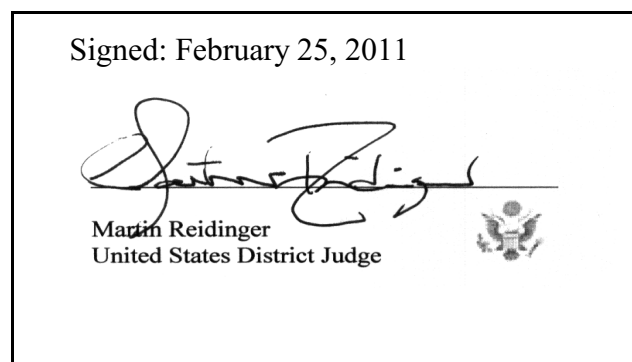 Signed: February 25, 2011
Martin Reidinger
Martin Reidinger
United States District Judge